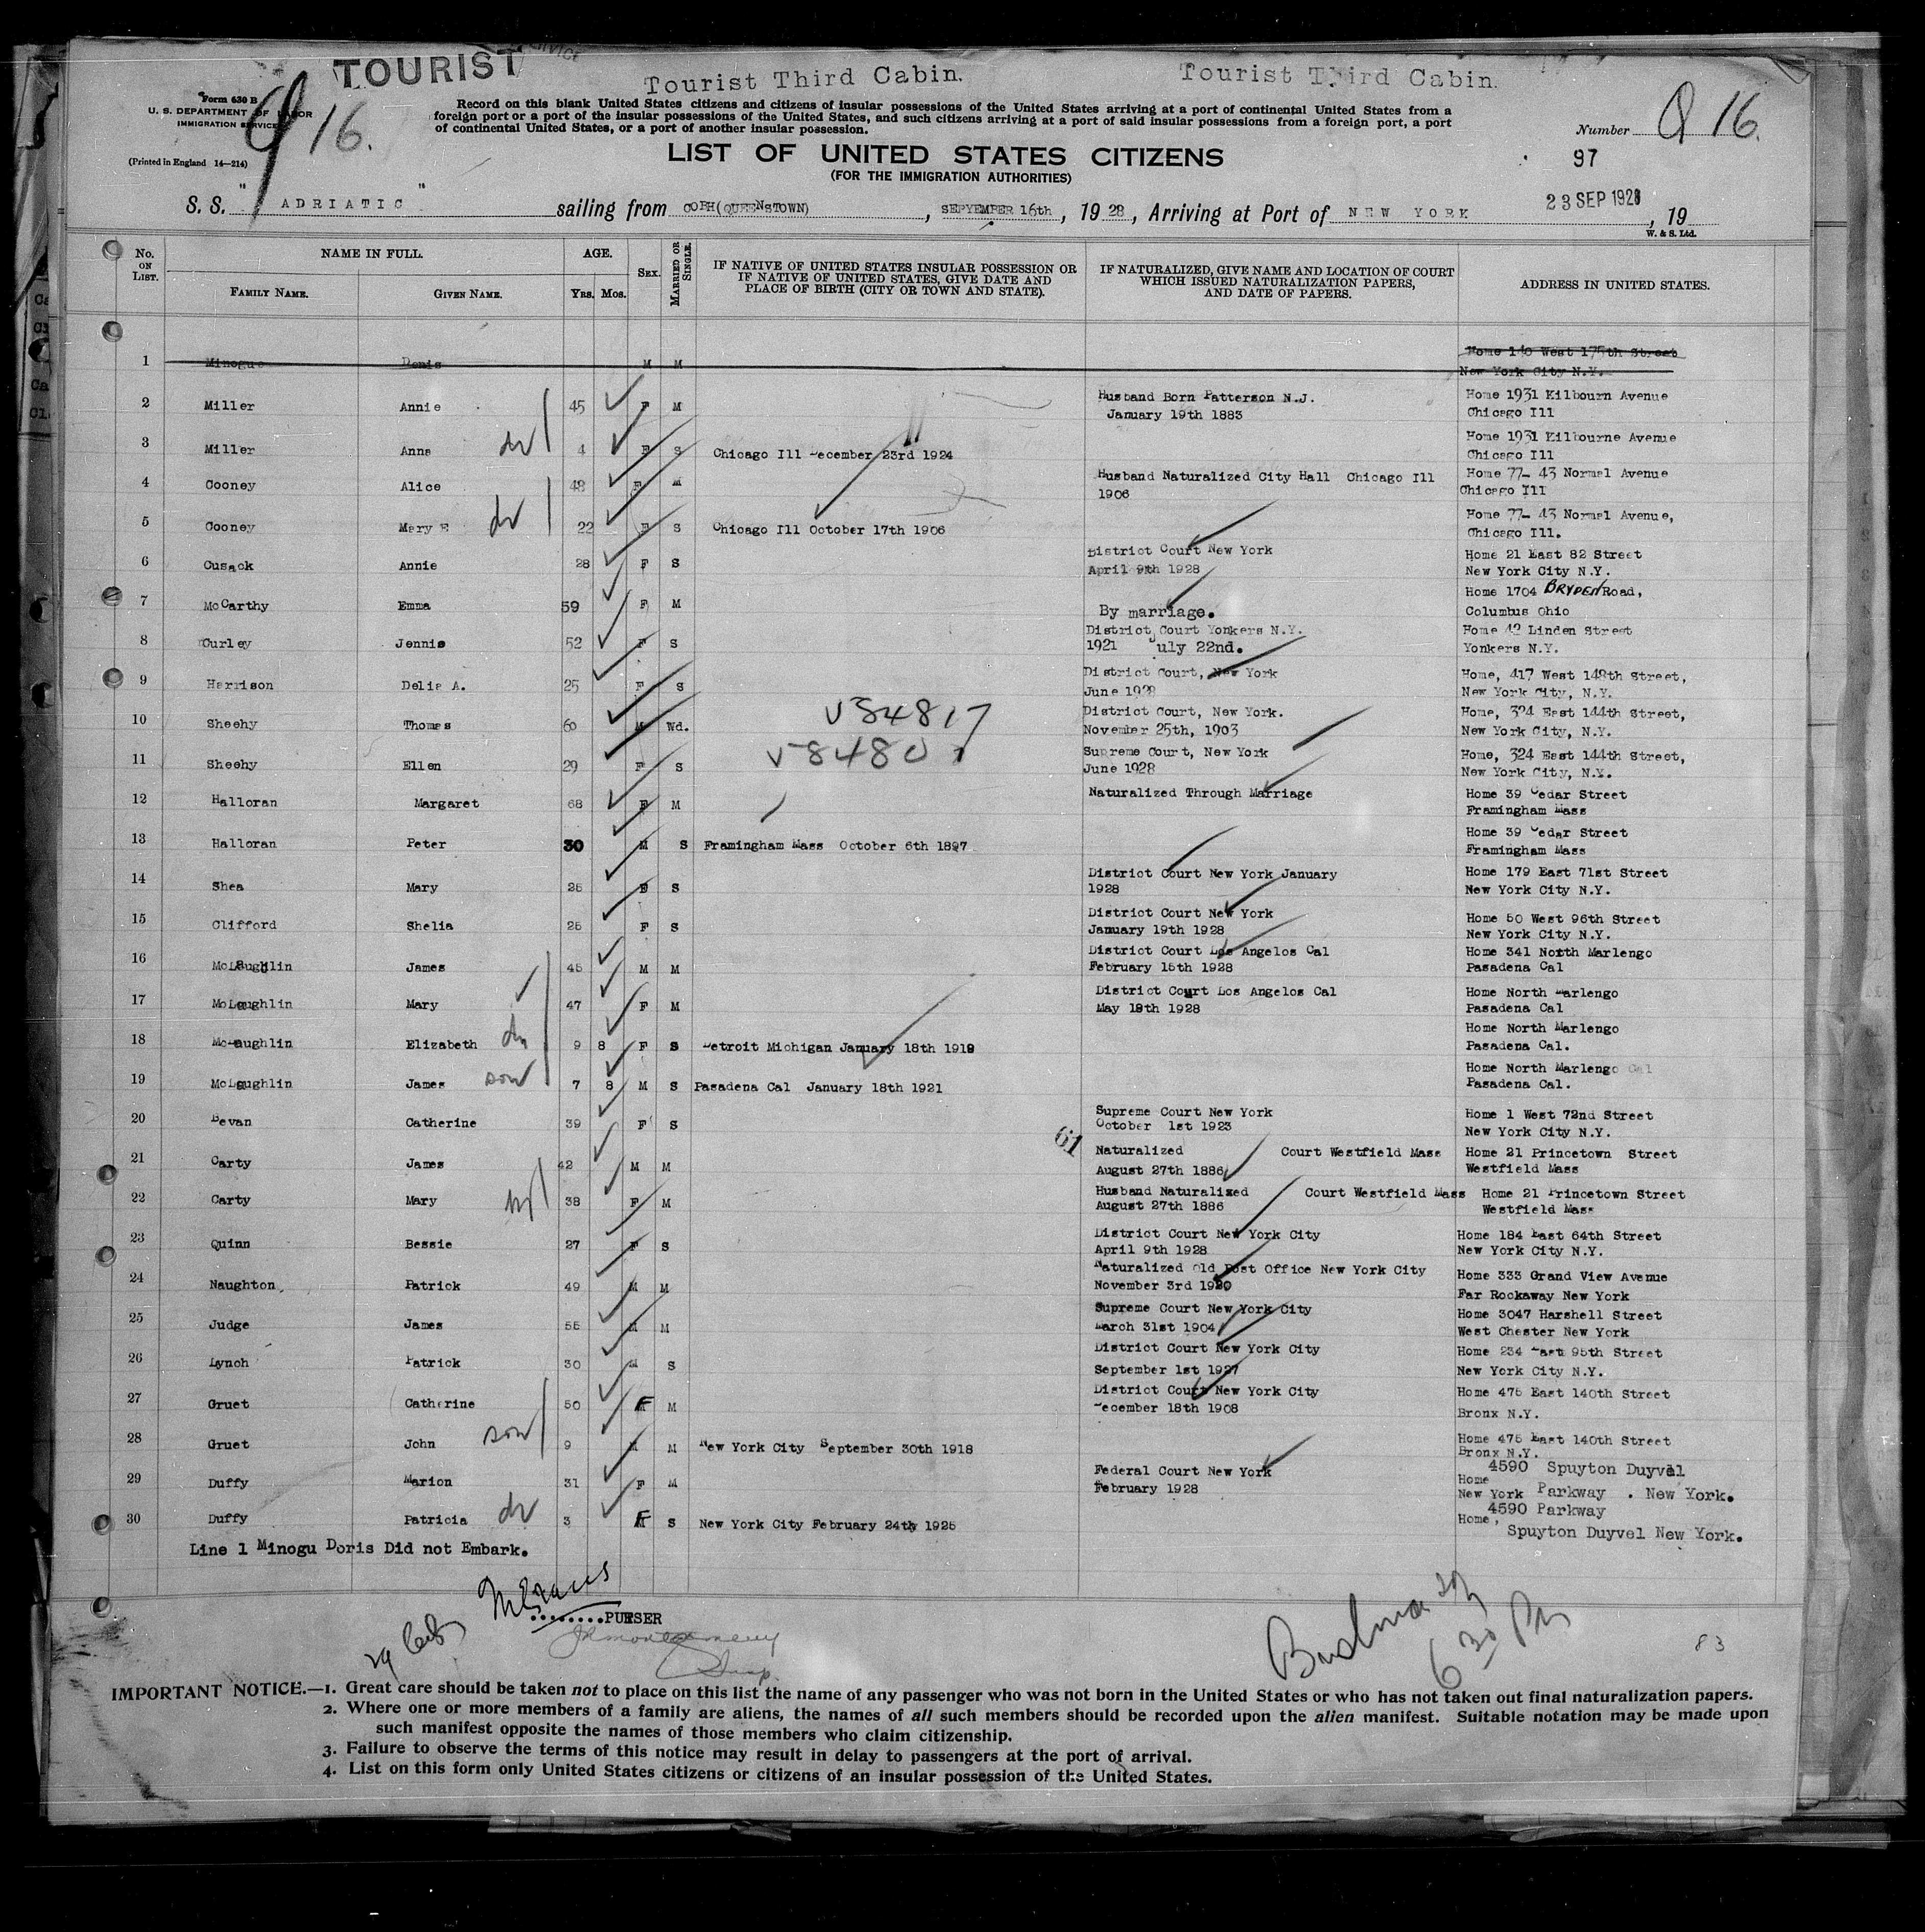 TOURIST
Tourist Third Cabin.
Tourist Third Cabin.
Form 630 B
U. S. DEPARTMENT OF LABOR
IMMIGRATION SERVICE
(Printed in England 14—214)
16.
Record on this blank United States citizens and citizens of insular possessions of the United States arriving at a port of continental United States from a
foreign port or a port of the insular possessions of the United States, and such citizens arriving at a port of said insular possessions from a foreign port, a port
of continental United States, or a port of another insular possession.
Number Q 16.
LIST OF UNITED STATES CITIZENS
(FOR THE IMMIGRATION AUTHORITIES)
97
S. S. "ADRIATIC" sailing from COBH(QUEENSTOWN), SEPYEMBER 16th, 1928, Arriving at Port of NEW YORK 23 SEP 1928, 19
W. & S. Ltd.
No. ON LIST. NAME IN FULL. AGE. SEX. MARRIED OR SINGLE. IF NATIVE OF UNITED STATES INSULAR POSSESSION OR IF NATIVE OF UNITED STATES, GIVE DATE AND PLACE OF BIRTH (CITY OR TOWN AND STATE). IF NATURALIZED, GIVE NAME AND LOCATION OF COURT WHICH ISSUED NATURALIZATION PAPERS, AND DATE OF PAPERS. ADDRESS IN UNITED STATES.
FAMILY NAME. GIVEN NAME. YRS. MOS.
1 Minogue Denis M M Home 140 West 175th Street
New York City N.Y.
2 Miller Annie 45 F M Husband Born Patterson N.J. Home 1931 Kilbourn Avenue
January 19th 1883 Chicago Ill
3 Miller Anna 4 F S Chicago Ill December 23rd 1924 Home 1931 Kilbourne Avenue
Chicago Ill
4 Cooney Alice 48 F M Husband Naturalized City Hall Chicago Ill Home 77- 43 Normal Avenue
1906 Chicago Ill
5 Cooney Mary E 22 F S Chicago Ill October 17th 1906 Home 77- 43 Normal Avenue,
Chicago Ill.
6 Cusack Annie 28 F S District Court New York Home 21 East 82 Street
April 9th 1928 New York City N.Y.
7 McCarthy Emma 59 F M By marriage. Home 1704 BRYDEN Road,
Columbus Ohio
8 Curley Jennie 52 F S District Court Yonkers N.Y. Home 42 Linden Street
1921 July 22nd. Yonkers N.Y.
9 Harrison Delia A. 25 F S District Court, New York Home, 417 West 148th Street,
June 1928 New York City, N.Y.
10 Sheehy Thomas 60 M Wd. V84817 District Court, New York. Home, 324 East 144th Street,
November 25th, 1903 New York City, N.Y.
11 Sheehy Ellen 29 F S Supreme Court, New York Home, 324 East 144th Street,
June 1928 New York City, N.Y.
12 Halloran Margaret 68 F M Naturalized Through Marriage Home 39 Cedar Street
Framingham Mass
13 Halloran Peter 30 M S Framingham Mass October 6th 1897 Home 39 Cedar Street
Framingham Mass
14 Shea Mary 25 F S District Court New York January Home 179 East 71st Street
1928 New York City N.Y.
15 Clifford Shelia 25 F S District Court New York Home 50 West 96th Street
January 19th 1928 New York City N.Y.
16 McLaughlin James 45 M M District Court Los Angelos Cal Home 341 North Marlengo
February 15th 1928 Pasadena Cal
17 McLaughlin Mary 47 F M District Court Los Angelos Cal Home North Marlengo
May 18th 1928 Pasadena Cal
18 McLaughlin Elizabeth 9 8 F S Detroit Michigan January 18th 1919 Home North Marlengo
Pasadena Cal.
19 McLaughlin James son 7 8 M S Pasadena Cal January 18th 1921 Home North Marlengo Cal
Pasadena Cal.
20 Bevan Catherine 39 F S Supreme Court New York Home 1 West 72nd Street
October 1st 1923 New York City N.Y.
61
21 Carty James 42 M M Naturalized Court Westfield Mass Home 21 Princetown Street
August 27th 1886 Westfield Mass
22 Carty Mary 38 F M Husband Naturalized Court Westfield Mass Home 21 Princetown Street
August 27th 1886 Westfield Mass
23 Quinn Bessie 27 F S District Court New York City Home 184 East 64th Street
April 9th 1928 New York City N.Y.
24 Naughton Patrick 49 M M Naturalized Old Post Office New York City Home 333 Grand View Avenue
November 3rd 1920 Far Rockaway New York
25 Judge James 55 M M Supreme Court New York City Home 3047 Harshell Street
March 31st 1904 West Chester New York
26 Lynch Patrick 30 M S District Court New York City Home 234 East 95th Street
September 1st 1927 New York City N.Y.
27 Gruet Catherine 50 F M District Court New York City Home 475 East 140th Street
December 18th 1908 Bronx N.Y.
28 Gruet John son 9 M M New York City September 30th 1918 Home 475 East 140th Street
Bronx N.Y.
29 Duffy Marion 31 F M Federal Court New York 4590 Spuyton Duyvel
February 1928 Home
New York Parkway . New York.
30 Duffy Patricia 3 F S New York City February 24th 1925 4590 Parkway
Home,
Spuyton Duyvel New York.
Line 1 Minogu Doris Did not Embark.
........PURSER
6 30 Pm
83
IMPORTANT NOTICE.—1. Great care should be taken not to place on this list the name of any passenger who was not born in the United States or who has not taken out final naturalization papers.
2. Where one or more members of a family are aliens, the names of all such members should be recorded upon the alien manifest. Suitable notation may be made upon
such manifest opposite the names of those members who claim citizenship.
3. Failure to observe the terms of this notice may result in delay to passengers at the port of arrival.
4. List on this form only United States citizens or citizens of an insular possession of the United States.